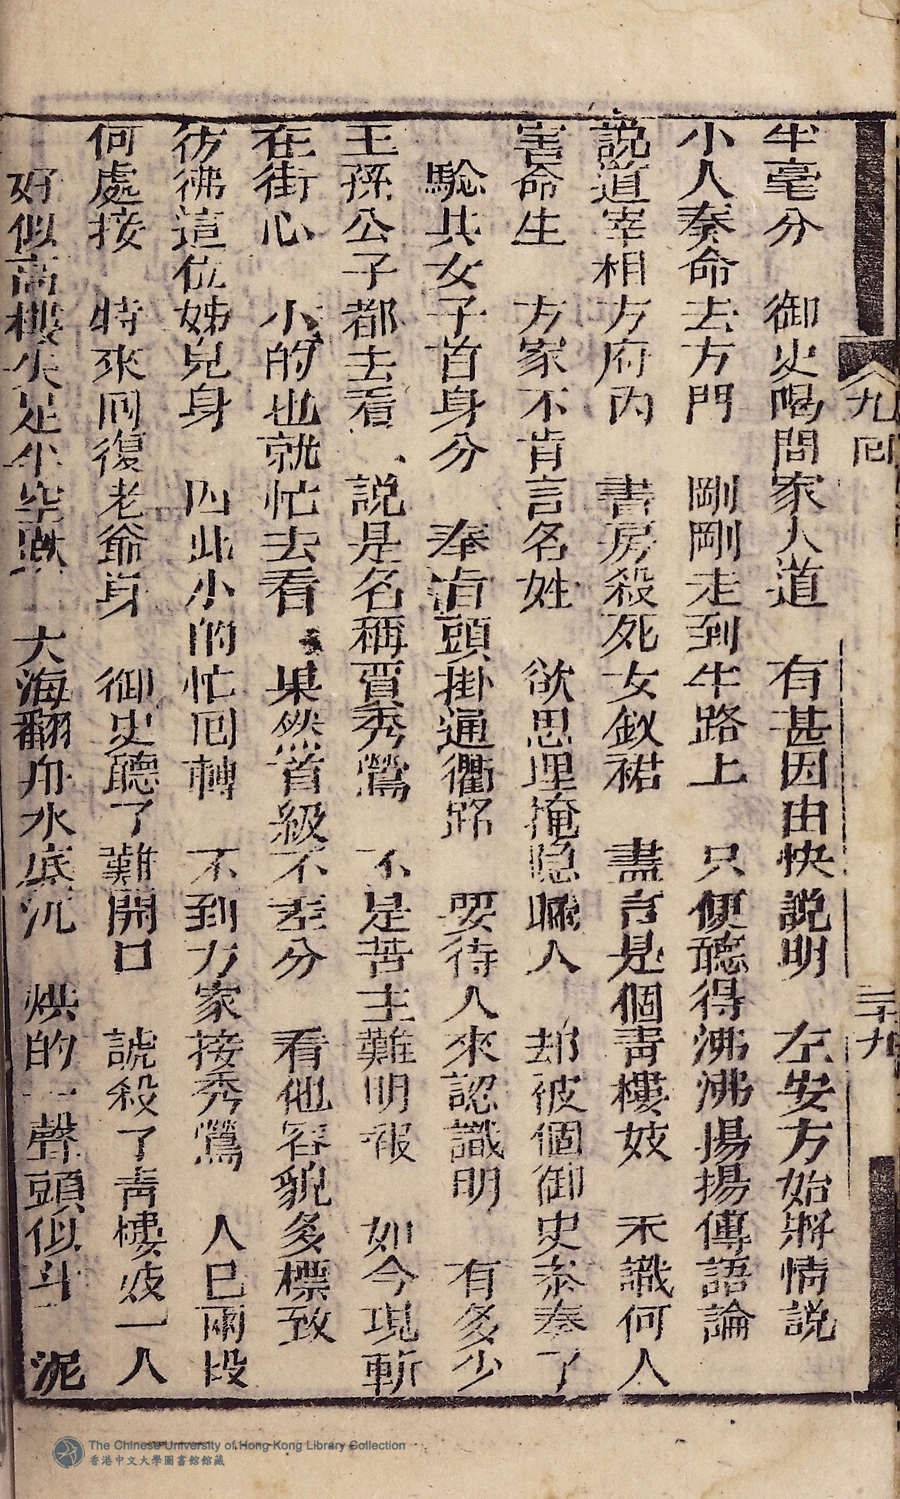 九回 二十九
半毫分 御史喝問家人道 有甚因由快說明 左安方始將情說
小人奏命去方門 剛剛走到半路上 只便聽得沸沸揚揚傳語論
説道宰相方府內 書房殺死女釵裙 盡言是個青樓妓 不識何人
害命生 方家不肯言名姓 欲思理掩隐瞞人 却被個御史叅奏了
驗其女子首身分 奉㫖頭掛通衢路 要待人來認識明 有多少
王孫公子都去看、 説是名稱賈秀鶯 不是苦主難明報 如今現斬
在街心 小的也就忙去看 果然首級不差分 看他容貌多標致
彷彿這位姊兒身 因此小的忙囘轉 不到方家接秀鶯 人已兩段
何處接 特來囘復老爺身 御史聽了難開口 諕殺了青樓妓一人
好似高樓失足半空 大海翻舟水底沉 烘的一聲頭似斗 泥
The Chinese University of Hong Kong Library Collection
香港中文大學圖書館館藏